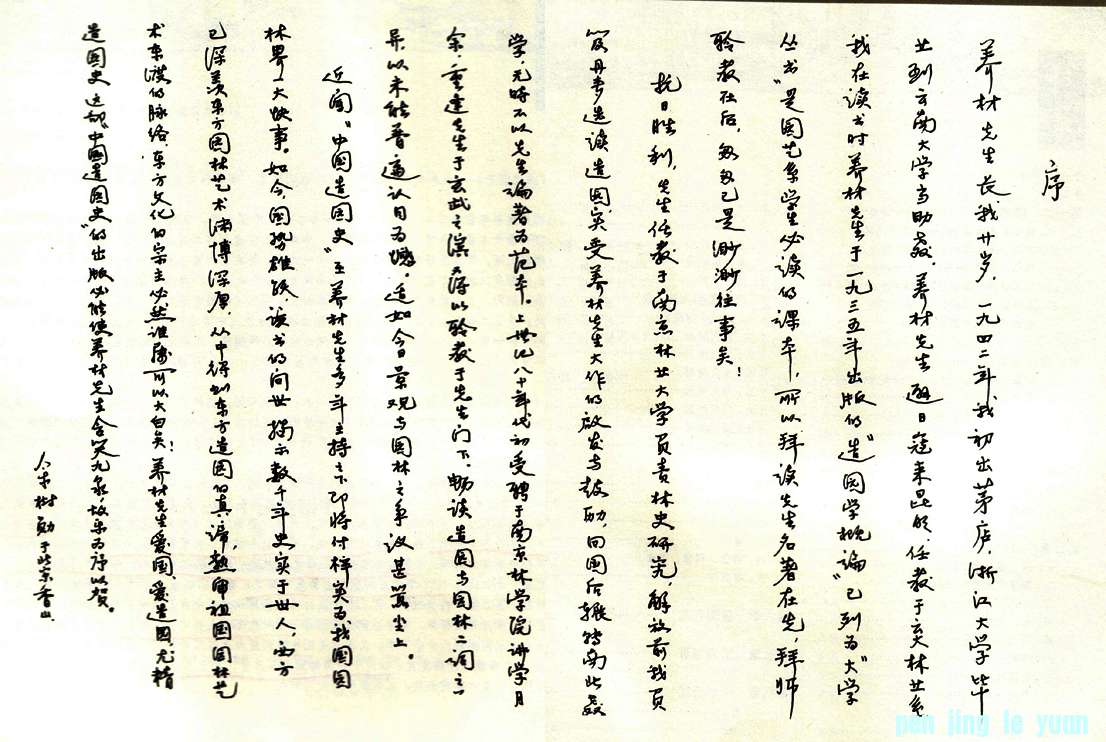 序
养材先生长我廿岁，一九四二年我初出茅庐，浙江大学毕
业到云南大学当助教，养材先生避日寇来昆明，任教于云大林业系
我在读书时养材先生于一九三五年出版的“造园学概论”已列为“大学
丛书”是园艺系学生必读的课本，所以拜读先生名著在先，拜师
聆教在后，匆匆已是渺渺往事矣！
抗日胜利，先生任教于南京林业大学负责林史研究，解放前我负
笈丹麦造读造园实受养材先生大作的启发与鼓励，回国后辗转南北教
学，无时不以先生论著为范本。上世纪八十年代初受聘于南京林学院讲学月
余，重逢先生于玄武之滨，又得以聆教于先生门下，畅谈造园与园林二词之
异，以未能普遍认同为憾，适如今日景观与园林之争议甚嚣尘上。
近闻“中国造园史”在养材先生多年主持之下即将付梓实为我国园
林界一大快事。如今国势雄跃，该书的问世揭示数千年史实于世人，西方
已深羡东方园林艺术渊博深厚，从中得到东方造园的真谛，熟审祖国园林艺
术东渡的脉络，东方文化的宗主必然谁属可以大白矣！养材先生爱国、爱造园、尤精
造园史，这部“中国造园史”的出版必能使养材先生含笑九泉，故乐为序以贺。
余树勋于北京香山
pen jing le yuan